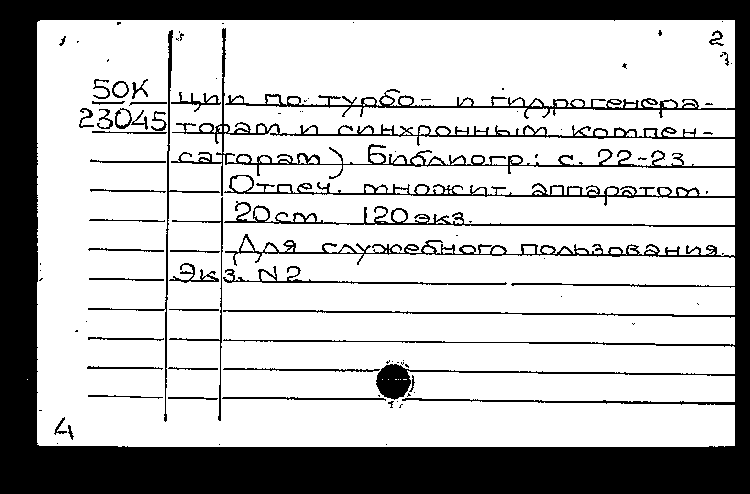 2
3
50К ции по турбо- и гидрогенера-
23045 торам и синхронным компен-
саторам). Библиогр.: с. 22-23.
Отпеч. множит. аппаратом.
20 см. 120 экз.
Для служебного пользования.
Экз. N2.
4